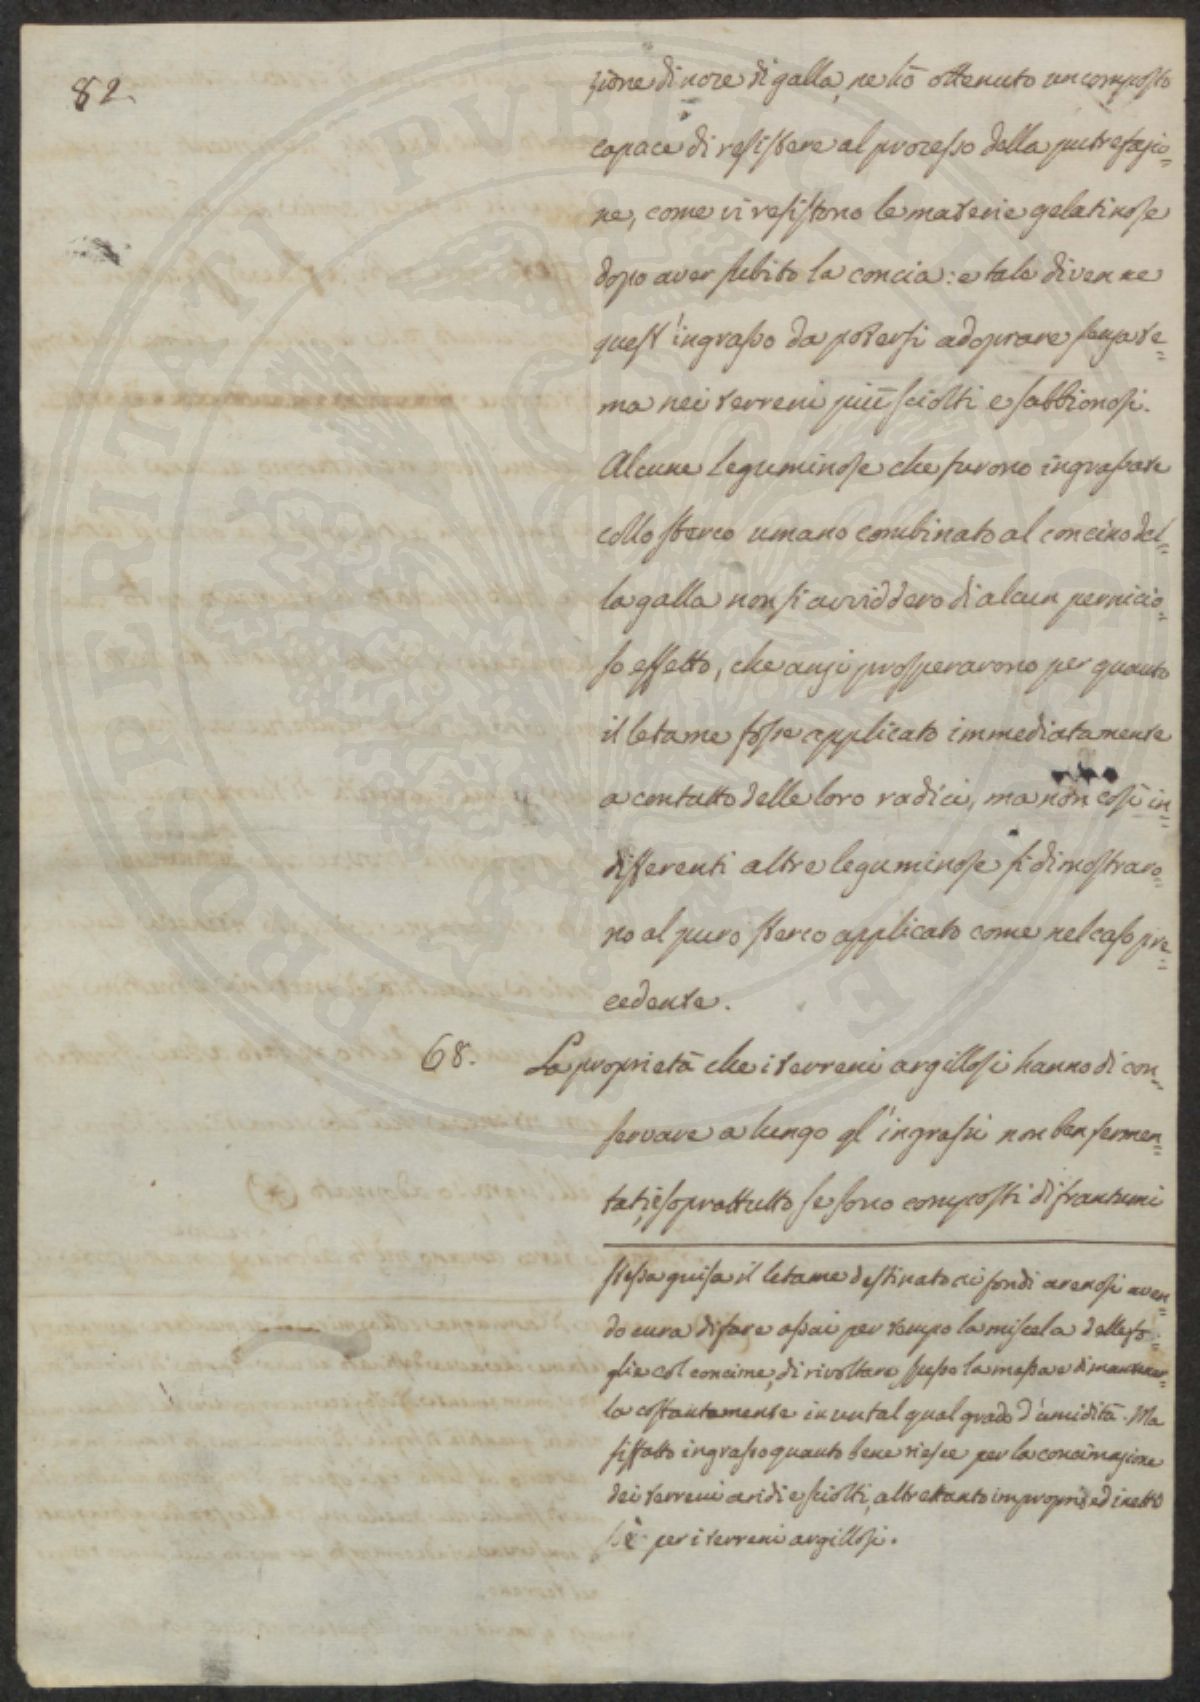 82.
zione di noce di galla, ne hò ottenuto un composto
capace di resistere al processo della putrefazio=
ne, come vi resistono le materie gelatinose
dopo aver subito la concia: e tale divenne
quest'ingrasso da potersi adoprare senza te=
ma nei terreni più sciolti e sabbionosi.
Alcune leguminose che furono ingrassate
collo sterco umano combinato al concino del=
la galla non si avviddero di alcun pernicio=
so effetto, che anzi prosperarono per quanto
il letame fosse applicato immediatamente
a contatto delle loro radici, ma non così in=
differenti altre leguminose si dimostraro=
no al puro sterco applicato come nel caso pre=
cedente.
68. La proprietà che i terreni argillosi hanno di con=
servare a lungo gl'ingrassi non ben fermen=
tati, e soprattutto se sono composti di frantumi
stessa guisa il letame destinato ai fondi arenosi aven=
do cura di fare assai per tempo la miscela delle fo=
glie col concime, di rivoltare spesso la massa e di mantener=
la costantemente in un tal qual grado d'umidità. Ma
siffatto ingrasso quanto bene riesce per la concimazione
dei terreni aridi e sciolti, altrettanto improprio ed inetto
è per i terreni argillosi.
PROPERITATI PVBLICAE